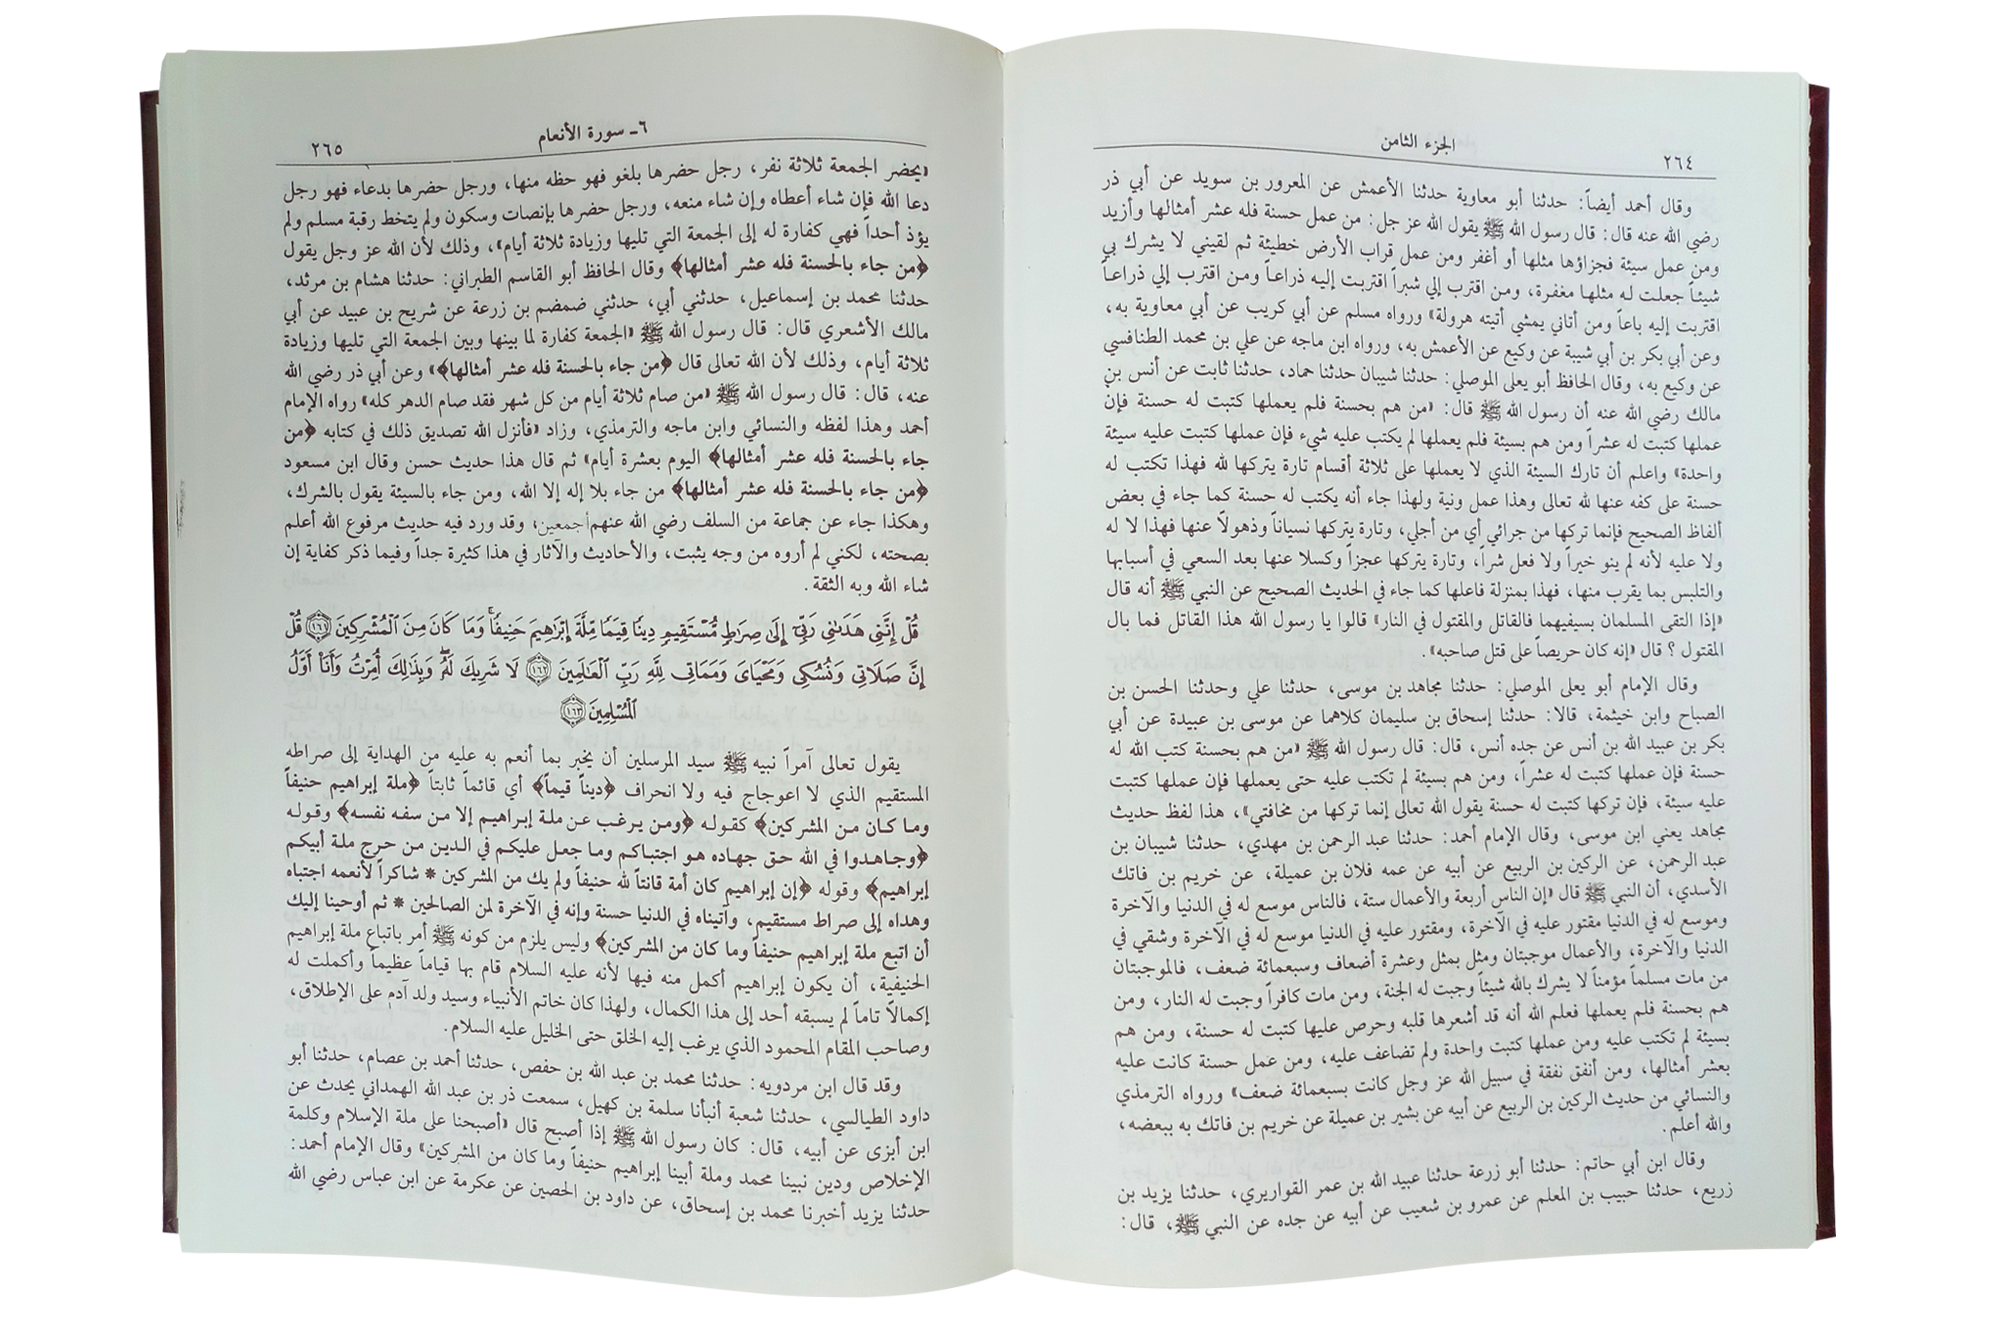 ٢٦٤
الجزء الثامن
وقال أحمد أيضاً: حدثنا أبو معاوية حدثنا الأعمش عن المعرور بن سويد عن أبي ذر
رضي الله عنه قال: قال رسول الله ﷺ يقول الله عز جل: من عمل حسنة فله عشر أمثالها وأزيد
ومن عمل سيئة فجزاؤها مثلها أو أغفر ومن عمل قراب الأرض خطيئة ثم لقيني لا يشرك بي
شيئاً جعلت له مثلها مغفرة، ومن اقترب إلي شبراً اقتربت إليه ذراعاً ومن اقترب إلي ذراعاً
اقتربت إليه باعاً ومن أتاني يمشي أتيته هرولة» ورواه مسلم عن أبي كريب عن أبي معاوية به،
وعن أبي بكر بن أبي شيبة عن وكيع عن الأعمش به، ورواه ابن ماجه عن علي بن محمد الطنافسي
عن وكيع به، وقال الحافظ أبو يعلى الموصلي: حدثنا شيبان حدثنا حماد، حدثنا ثابت عن أنس بن
مالك رضي الله عنه أن رسول الله ﷺ قال: «من هم بحسنة فلم يعملها كتبت له حسنة فإن
عملها كتبت له عشراً ومن هم بسيئة فلم يعملها لم يكتب عليه شيء فإن عملها كتبت عليه سيئة
واحدة» واعلم أن تارك السيئة الذي لا يعملها على ثلاثة أقسام تارة يتركها لله فهذا تكتب له
حسنة على كفه عنها لله تعالى وهذا عمل ونية ولهذا جاء أنه يكتب له حسنة كما جاء في بعض
ألفاظ الصحيح فإنما تركها من جرائي أي من أجلي، وتارة يتركها نسياناً وذهولاً عنها فهذا لا له
ولا عليه لأنه لم ينو خيراً ولا فعل شراً، وتارة يتركها عجزاً وكسلا عنها بعد السعي في أسبابها
والتلبس بما يقرب منها، فهذا بمنزلة فاعلها كما جاء في الحديث الصحيح عن النبي ﷺ أنه قال
«إذا التقى المسلمان بسيفيهما فالقاتل والمقتول في النار» قالوا يا رسول الله هذا القاتل فما بال
المقتول ؟ قال «إنه كان حريصاً على قتل صاحبه».
وقال الإمام أبو يعلى الموصلي: حدثنا مجاهد بن موسى، حدثنا علي وحدثنا الحسن بن
الصباح وابن خيثمة، قالا: حدثنا إسحاق بن سليمان كلاهما عن موسى بن عبيدة عن أبي
بكر بن عبيد الله بن أنس عن جده أنس، قال: قال رسول الله ﷺ «من هم بحسنة كتب الله له
حسنة فإن عملها كتبت له عشراً، ومن هم بسيئة لم تكتب عليه حتى يعملها فإن عملها كتبت
عليه سيئة، فإن تركها كتبت له حسنة يقول الله تعالى إنما تركها من مخافتي»، هذا لفظ حديث
مجاهد يعني ابن موسى، وقال الإمام أحمد: حدثنا عبد الرحمن بن مهدي، حدثنا شيبان بن
عبد الرحمن، عن الركين بن الربيع عن أبيه عن عمه فلان بن عميلة، عن خريم بن فاتك
الأسدي، أن النبي ﷺ قال «إن الناس أربعة والأعمال ستة، فالناس موسع له في الدنيا والآخرة
وموسع له في الدنيا مقتور عليه في الآخرة، ومقتور عليه في الدنيا موسع له في الآخرة وشقي في
الدنيا والآخرة، والأعمال موجبتان ومثل بمثل وعشرة أضعاف وسبعمائة ضعف، فالموجبتان
من مات مسلماً مؤمناً لا يشرك بالله شيئاً وجبت له الجنة، ومن مات كافراً وجبت له النار، ومن
هم بحسنة فلم يعملها فعلم الله أنه قد أشعرها قلبه وحرص عليها كتبت له حسنة، ومن هم
بسيئة لم تكتب عليه ومن عملها كتبت واحدة ولم تضاعف عليه، ومن عمل حسنة كانت عليه
بعشر أمثالها، ومن أنفق نفقة في سبيل الله عز وجل كانت بسبعمائة ضعف» ورواه الترمذي
والنسائي من حديث الركين بن الربيع عن أبيه عن بشير بن عميلة عن خريم بن فاتك به ببعضه،
والله أعلم.
وقال ابن أبي حاتم: حدثنا أبو زرعة حدثنا عبيد الله بن عمر القواريري، حدثنا يزيد بن
زريع، حدثنا حبيب بن المعلم عن عمرو بن شعيب عن أبيه عن جده عن النبي ﷺ، قال:
٦ـ سورة الأنعام
٢٦٥
«يحضر الجمعة ثلاثة نفر، رجل حضرها بلغو فهو حظه منها، ورجل حضرها بدعاء فهو رجل
دعا الله فإن شاء أعطاه وإن شاء منعه، ورجل حضرها بإنصات وسكون ولم يتخط رقبة مسلم ولم
يؤذ أحداً فهي كفارة له إلى الجمعة التي تليها وزيادة ثلاثة أيام»، وذلك لأن الله عز وجل يقول
﴿من جاء بالحسنة فله عشر أمثالها﴾ وقال الحافظ أبو القاسم الطبراني: حدثنا هشام بن مرثد،
حدثنا محمد بن إسماعيل، حدثني أبي، حدثني ضمضم بن زرعة عن شريح بن عبيد عن أبي
مالك الأشعري قال: قال رسول الله ﷺ «الجمعة كفارة لما بينها وبين الجمعة التي تليها وزيادة
ثلاثة أيام، وذلك لأن الله تعالى قال ﴿من جاء بالحسنة فله عشر أمثالها﴾» وعن أبي ذر رضي الله
عنه، قال: قال رسول الله ﷺ «من صام ثلاثة أيام من كل شهر فقد صام الدهر كله» رواه الإمام
أحمد وهذا لفظه والنسائي وابن ماجه والترمذي، وزاد «فأنزل الله تصديق ذلك في كتابه ﴿من
جاء بالحسنة فله عشر أمثالها﴾ اليوم بعشرة أيام» ثم قال هذا حديث حسن وقال ابن مسعود
﴿من جاء بالحسنة فله عشر أمثالها﴾ من جاء بلا إله إلا الله، ومن جاء بالسيئة يقول بالشرك،
وهكذا جاء عن جماعة من السلف رضي الله عنهم أجمعين، وقد ورد فيه حديث مرفوع الله أعلم
بصحته، لكني لم أروه من وجه يثبت، والأحاديث والآثار في هذا كثيرة جداً وفيما ذكر كفاية إن
شاء الله وبه الثقة.
قُلْ إِنَّنِي هَدَىٰنِي رَبِّيٓ إِلَىٰ صِرَٰطٍ مُّسْتَقِيمٍ دِينًا قِيَمًا مِّلَّةَ إِبْرَٰهِيمَ حَنِيفًا ۚ وَمَا كَانَ مِنَ ٱلْمُشْرِكِينَ ﴿١٦١﴾ قُلْ
إِنَّ صَلَاتِي وَنُسُكِي وَمَحْيَايَ وَمَمَاتِي لِلَّهِ رَبِّ ٱلْعَٰلَمِينَ ﴿١٦٢﴾ لَا شَرِيكَ لَهُۥ ۖ وَبِذَٰلِكَ أُمِرْتُ وَأَنَا۠ أَوَّلُ
ٱلْمُسْلِمِينَ ﴿١٦٣﴾
يقول تعالى آمراً نبيه ﷺ سيد المرسلين أن يخبر بما أنعم به عليه من الهداية إلى صراطه
المستقيم الذي لا اعوجاج فيه ولا انحراف ﴿ديناً قيماً﴾ أي قائماً ثابتاً ﴿ملة إبراهيم حنيفاً
وما كان من المشركين﴾ كقوله ﴿ومن يرغب عن ملة إبراهيم إلا من سفه نفسه﴾ وقوله
﴿وجاهدوا في الله حق جهاده هو اجتباكم وما جعل عليكم في الدين من حرج ملة أبيكم
إبراهيم﴾ وقوله ﴿إن إبراهيم كان أمة قانتاً لله حنيفاً ولم يك من المشركين * شاكراً لأنعمه اجتباه
وهداه إلى صراط مستقيم، وآتيناه في الدنيا حسنة وإنه في الآخرة لمن الصالحين * ثم أوحينا إليك
أن اتبع ملة إبراهيم حنيفاً وما كان من المشركين﴾ وليس يلزم من كونه ﷺ أمر باتباع ملة إبراهيم
الحنيفية، أن يكون إبراهيم أكمل منه فيها لأنه عليه السلام قام بها قياماً عظيماً وأكملت له
إكمالاً تاماً لم يسبقه أحد إلى هذا الكمال، ولهذا كان خاتم الأنبياء وسيد ولد آدم على الإطلاق،
وصاحب المقام المحمود الذي يرغب إليه الخلق حتى الخليل عليه السلام.
وقد قال ابن مردويه: حدثنا محمد بن عبد الله بن حفص، حدثنا أحمد بن عصام، حدثنا أبو
داود الطيالسي، حدثنا شعبة أنبأنا سلمة بن كهيل، سمعت ذر بن عبد الله الهمداني يحدث عن
ابن أبزى عن أبيه، قال: كان رسول الله ﷺ إذا أصبح قال «أصبحنا على ملة الإسلام وكلمة
الإخلاص ودين نبينا محمد وملة أبينا إبراهيم حنيفاً وما كان من المشركين» وقال الإمام أحمد:
حدثنا يزيد أخبرنا محمد بن إسحاق، عن داود بن الحصين عن عكرمة عن ابن عباس رضي الله